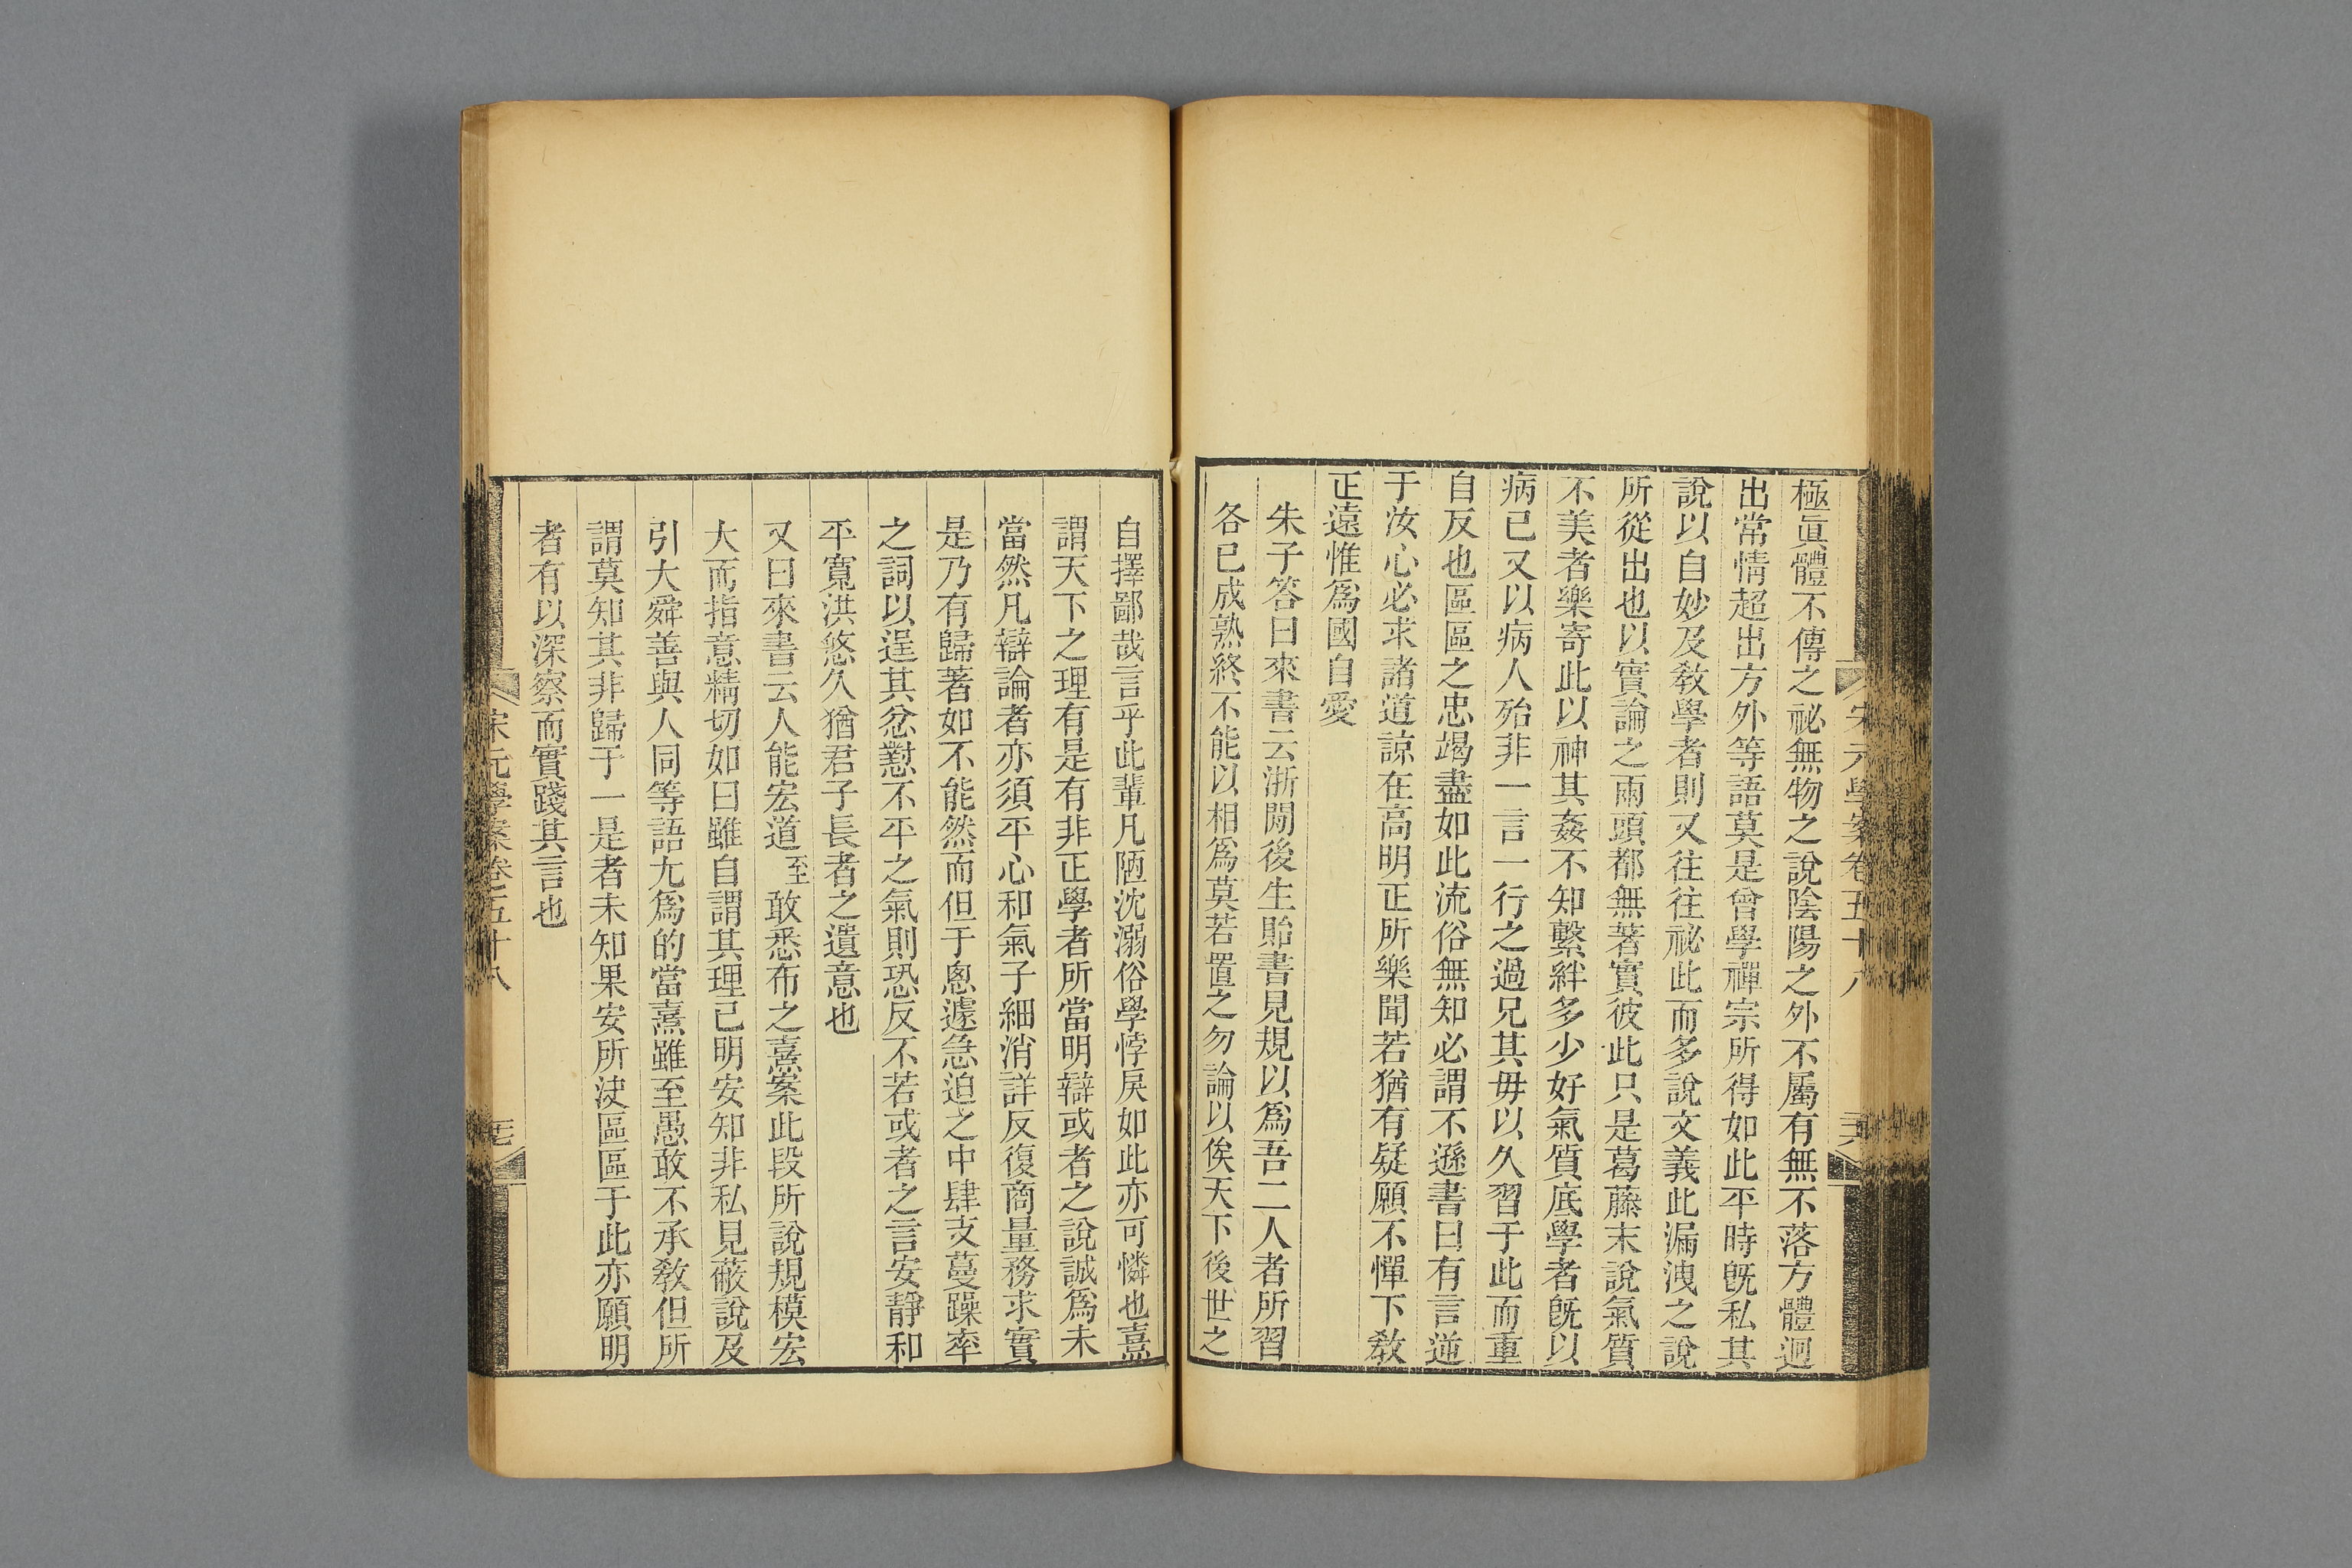 宋元學案卷五十八
極眞體不傳之祕無物之說陰陽之外不屬有無不落方體迥
出常情超出方外等語莫是曾學禪宗所得如此平時旣私其
說以自妙及敎學者則又往往祕此而多說文義此漏洩之說
所從出也以實論之兩頭都無著實彼此只是葛藤末說氣質
不美者樂寄此以神其姦不知繫絆多少好氣質底學者旣以
病已又以病人殆非一言一行之過兄其毋以久習于此而重
自反也區區之忠竭盡如此流俗無知必謂不遜書曰有言逆
于汝心必求諸道諒在高明正所樂聞若猶有疑願不憚下敎
正遠惟爲國自愛
朱子答曰來書云浙閒後生貽書見規以爲吾二人者所習
各已成熟終不能以相爲莫若置之勿論以俟天下後世之
自擇鄙哉言乎此輩凡陋沈溺俗學悖戾如此亦可憐也熹
謂天下之理有是有非正學者所當明辯或者之說誠爲未
當然凡辯論者亦須平心和氣子細消詳反復商量務求實
是乃有歸著如不能然而但于悤遽急迫之中肆支蔓躁率
之詞以逞其忿懟不平之氣則恐反不若或者之言安靜和
平寬洪悠久猶君子長者之遺意也
又曰來書云人能宏道至敢悉布之熹案此段所說規模宏
大而指意精切如曰雖自謂其理已明安知非私見蔽說及
引大舜善與人同等語尤爲的當熹雖至愚敢不承敎但所
謂莫知其非歸于一是者未知果安所決區區于此亦願明
者有以深察而實踐其言也
宋元學案卷五十八